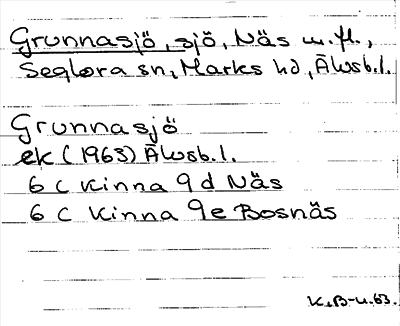 Grunnasjö, sjö, Näs m.fl.,
Seglora sn, Marks hd, Älvsb.l.
Grunnasjö
ek (1963) Älvsb.l.
6 C Kinna 9 d Näs
6 C Kinna 9e Bosnäs
K.B-u.63.